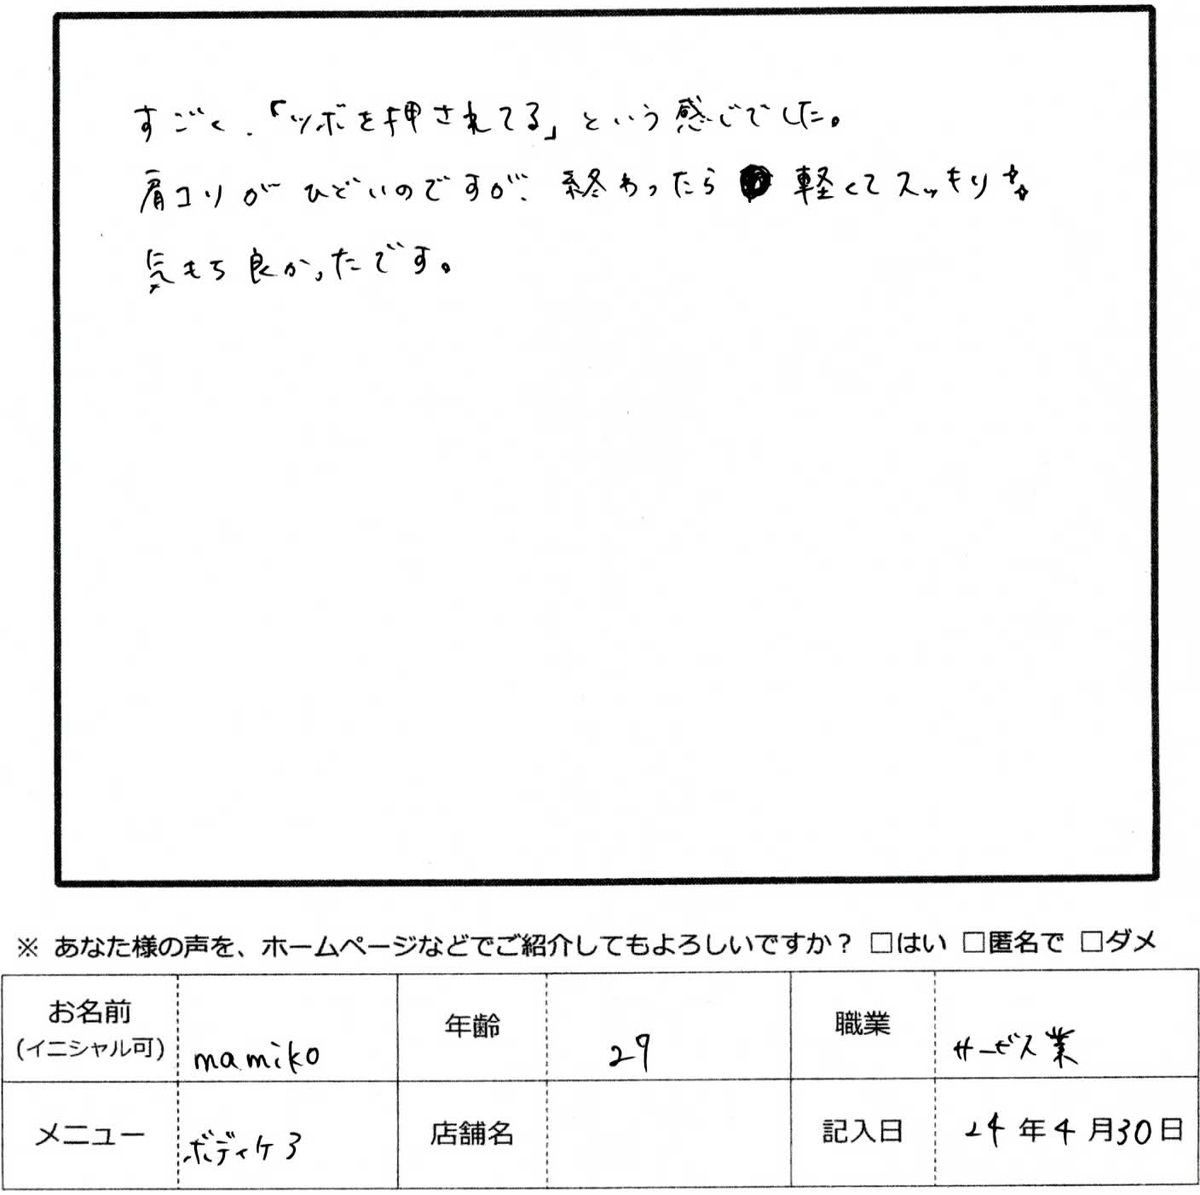 すごく、「ツボを押されてる」という感じでした。
肩コリがひどいのですが、終わったら軽くてスッキリ
気もち良かったです。
※ あなた様の声を、ホームページなどでご紹介してもよろしいですか？ □はい □匿名で □ダメ
お名前
(イニシャル可)
mamiko
年齢
29
職業
サービス業
メニュー
ボディケ3
店舗名
記入日
24年4月30日